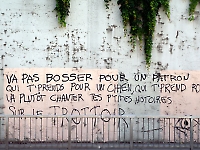 VA PAS BOSSER POUR UN PATRON
QUI T'PRENDS POUR UN CHIEN, QUI T'PREND PO
VA PLUTÔT CHANTER TES P'TITES HISTOIRES
SUR LE TROTTOIR